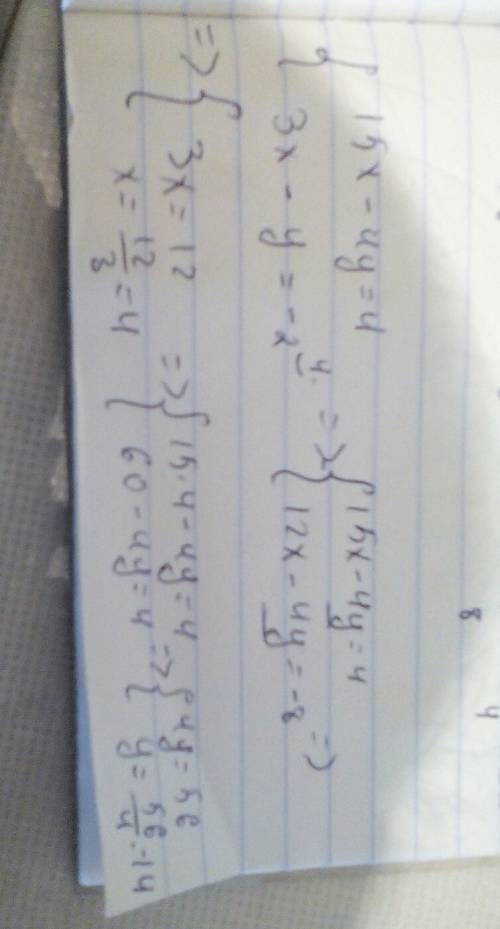 8
4
{ 15x - 4y = 4
{ 3x - y = -2 |4· => { 15x - 4y = 4
{ 12x - 4y = -8 =>
=> { 3x = 12
{ x = 12/3 = 4 => { 15·4 - 4y = 4
{ 60 - 4y = 4 => { 4y = 56
{ y = 56/4 = 14